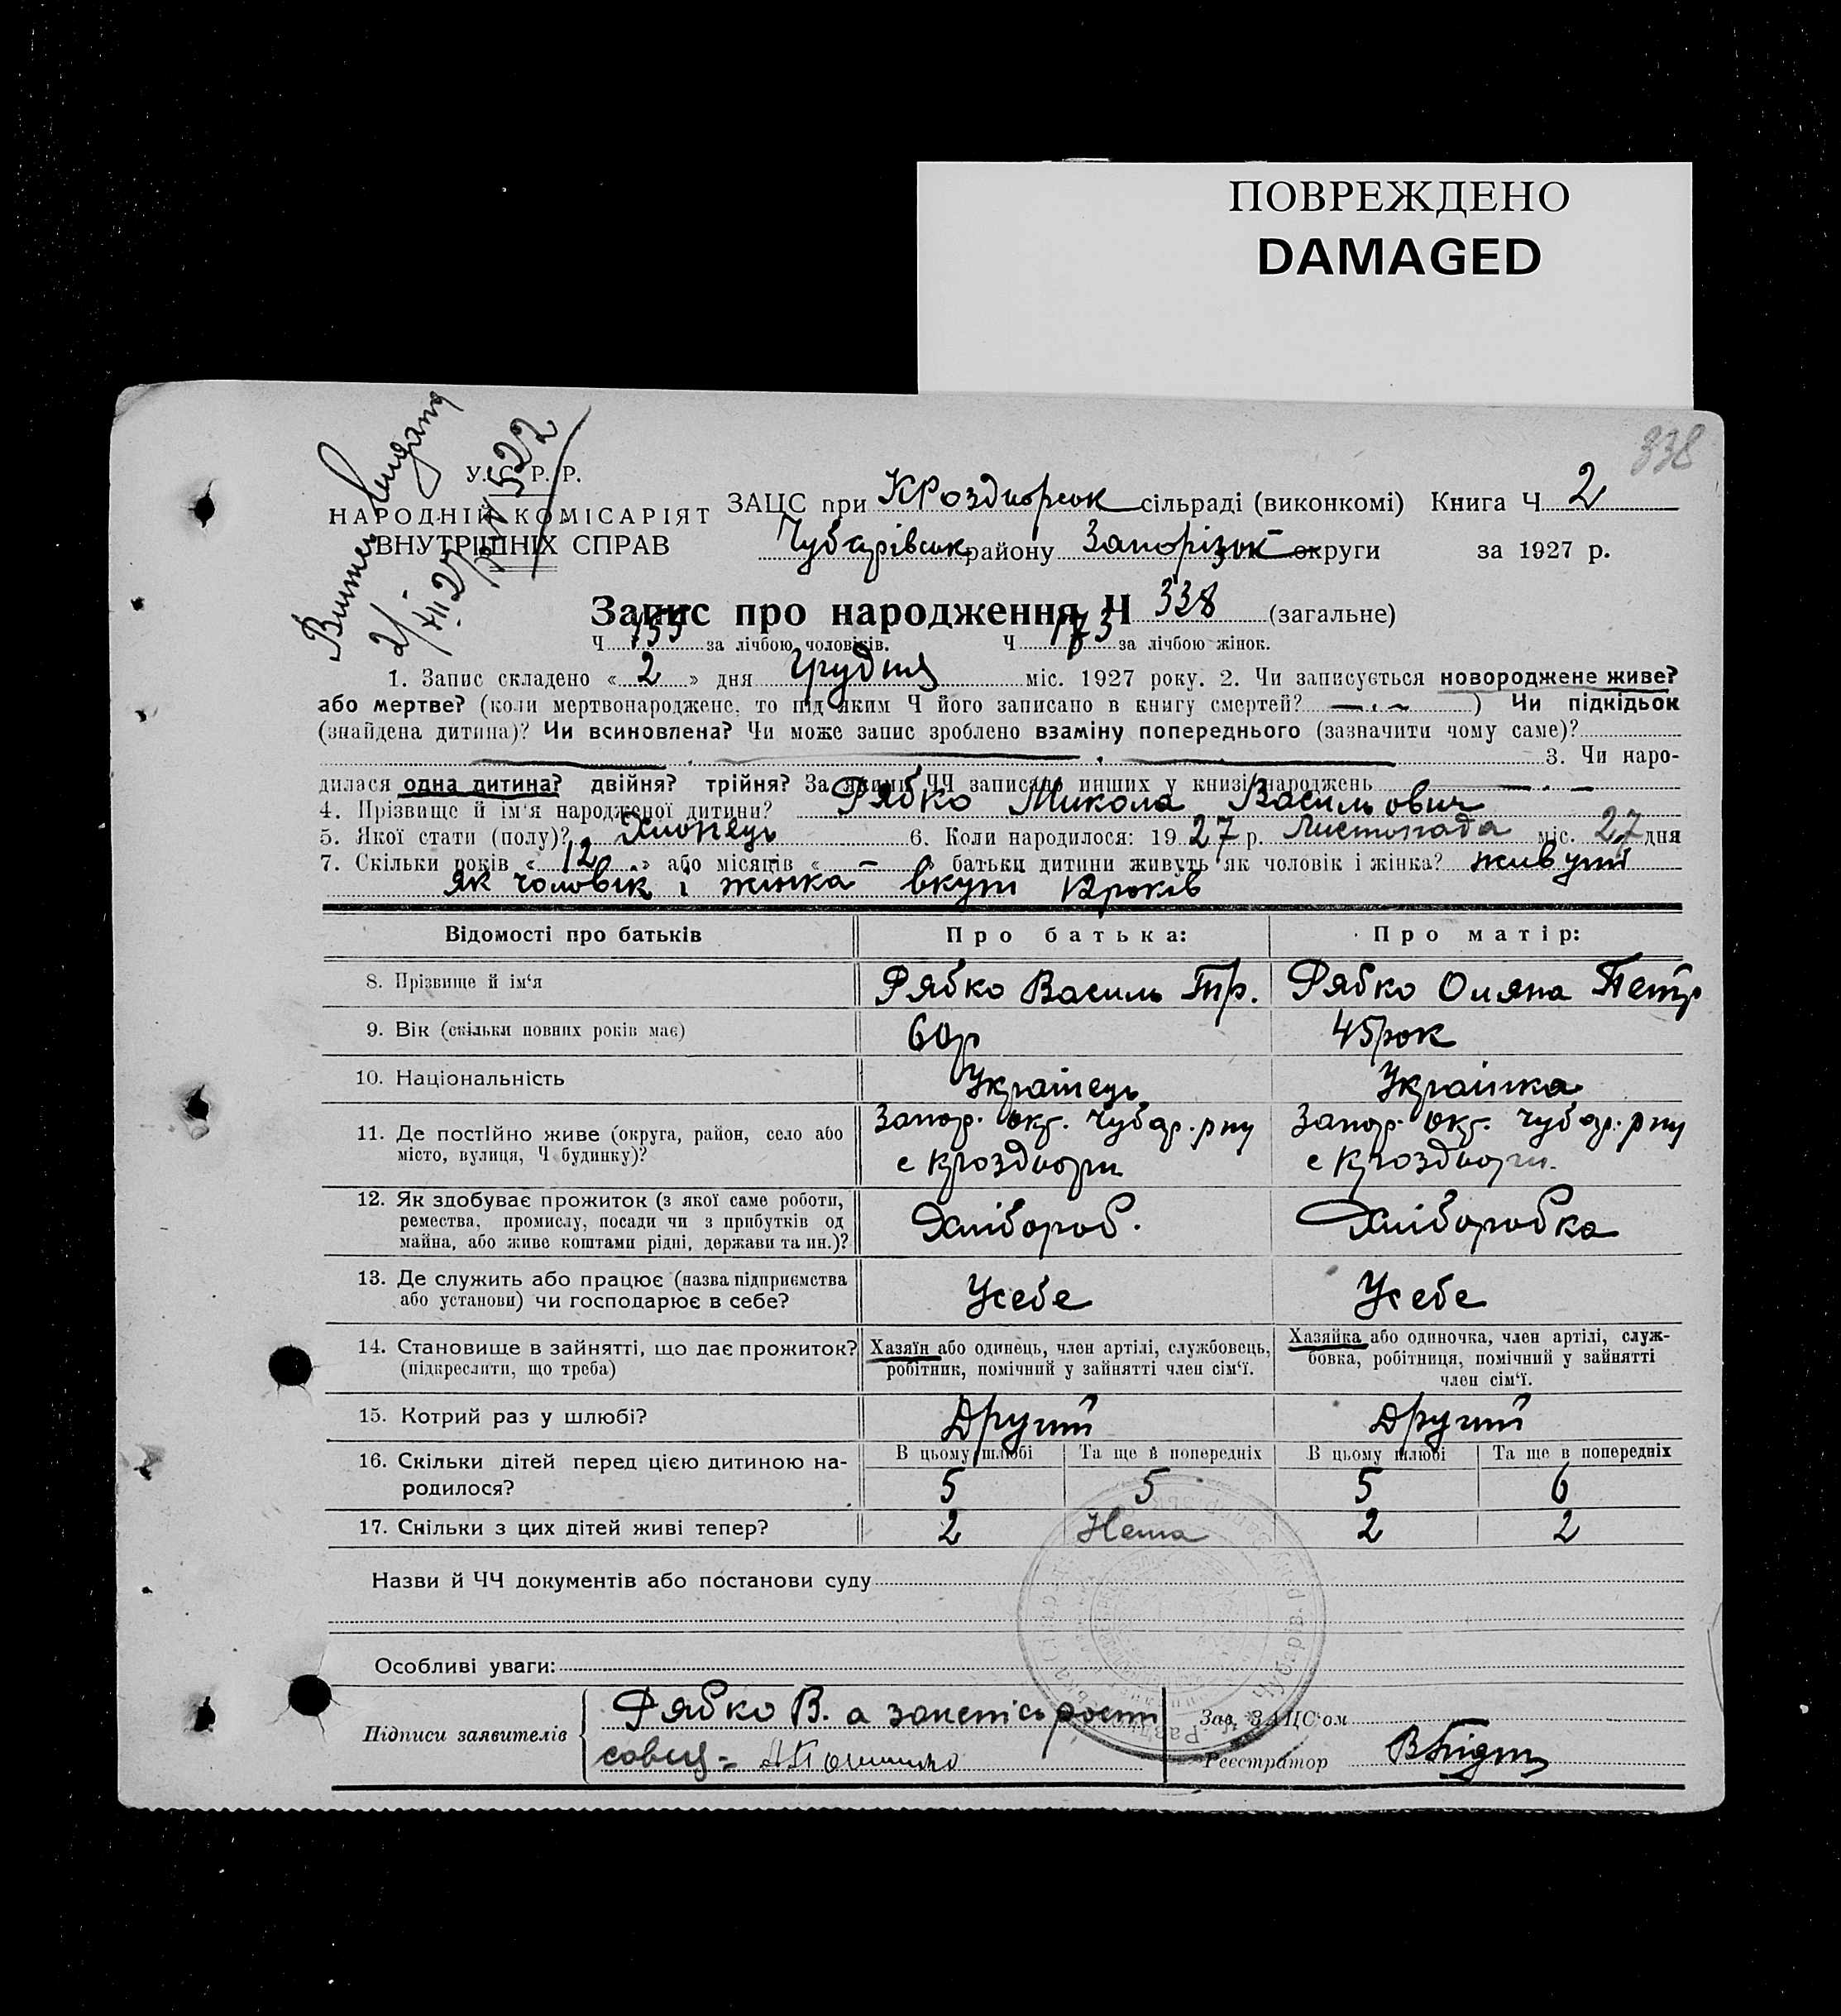 ПОВРЕЖДЕНО
DAMAGED
338
Витяг видано
2/XII 27 р. № 522
У. С. Р. Р.
НАРОДНІЙ КОМІСАРІЯТ
ВНУТРІШНІХ СПРАВ
ЗАЦС при КРоздорськ сільраді (виконкомі) Книга Ч 2
Чубарівськ району Запорізьк округи за 1927 р.
Запис про народження Ч 338 (загальне)
Ч 155 за лічбою чоловіків. Ч 173 за лічбою жінок.
1. Запис складено « 2 » дня Грудня міс. 1927 року. 2. Чи записується новороджене живе?
або мертве? (коли мертвонароджене, то під яким Ч його записано в книгу смертей? — . ~ ) Чи підкідьок
(знайдена дитина)? Чи всиновлена? Чи може запис зроблено взаміну попереднього (зазначити чому саме)?
3. Чи наро-
дилася одна дитина? двійня? трійня? За якими ЧЧ записано инших у книзі народжень — . —
4. Прізвище й ім'я народженої дитини? Рябко Микола Васильович
5. Якої стати (полу)? Хлопець 6. Коли народилося: 1927 р. Листопада міс. 27 дня
7. Скільки років « 12 » або місяців « – » батьки дитини живуть як чоловік і жінка? живуть
як чоловік і жінка вкупі 12 років
Відомості про батьків Про батька: Про матір:
8. Прізвище й ім'я Рябко Василь Тр. Рябко Оляна Петр
9. Вік (скільки повних років має) 60 р 45 рок
10. Національність Українець Українка
11. Де постійно живе (округа, район, село або Запор. окр. Чубар. рну Запор. окр. Чубар. рну
місто, вулиця, Ч будинку)? с Кроздори с Кроздори.
12. Як здобуває прожиток (з якої саме роботи,
ремества, промислу, посади чи з прибутків од Хлібороб. Хліборобка
майна, або живе коштами рідні, держави та ин.)?
13. Де служить або працює (назва підприємства
або установи) чи господарює в себе? Усебе Усебе
14. Становище в зайнятті, що дає прожиток? Хазяїн або одинець, член артілі, службовець, Хазяйка або одиночка, член артілі, служ-
(підкреслити, що треба) робітник, помічний у зайнятті член сім'ї. бовка, робітниця, помічний у зайнятті
член сім'ї.
15. Котрий раз у шлюбі? Другий Другий
В цьому шлюбі Та ще в попередніх В цьому шлюбі Та ще в попередніх
16. Скільки дітей перед цією дитиною на-
родилося? 5 5 5 6
17. Скільки з цих дітей живі тепер? 2 Нема 2 2
Назви й ЧЧ документів або постанови суду
Особливі уваги:
Підписи заявителів Рябко В. а
Зав. ЗАЦС'ом
Реєстратор